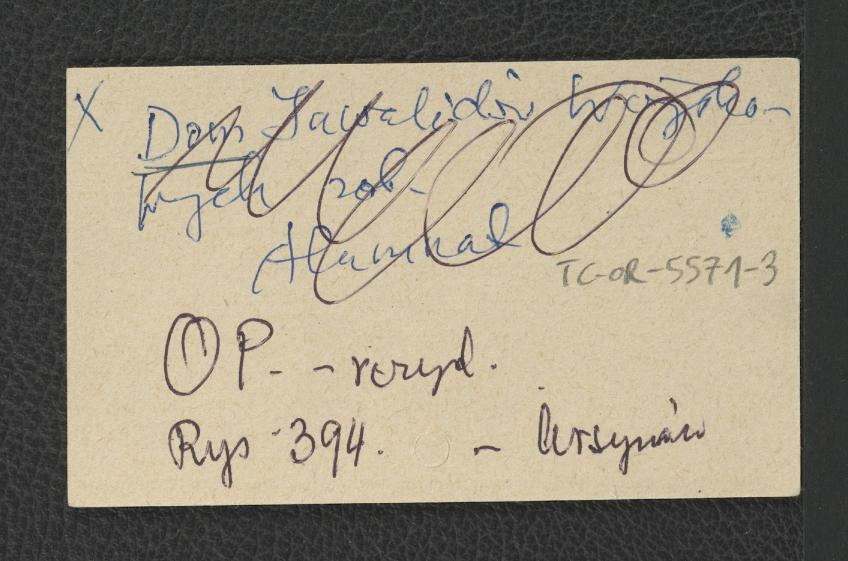 X Dom Inwalidów Wojsko-
wych rob.
Alumnat
TC-OR-5571-3
OP. - - rezyd.
Rys 394. - Ursynów